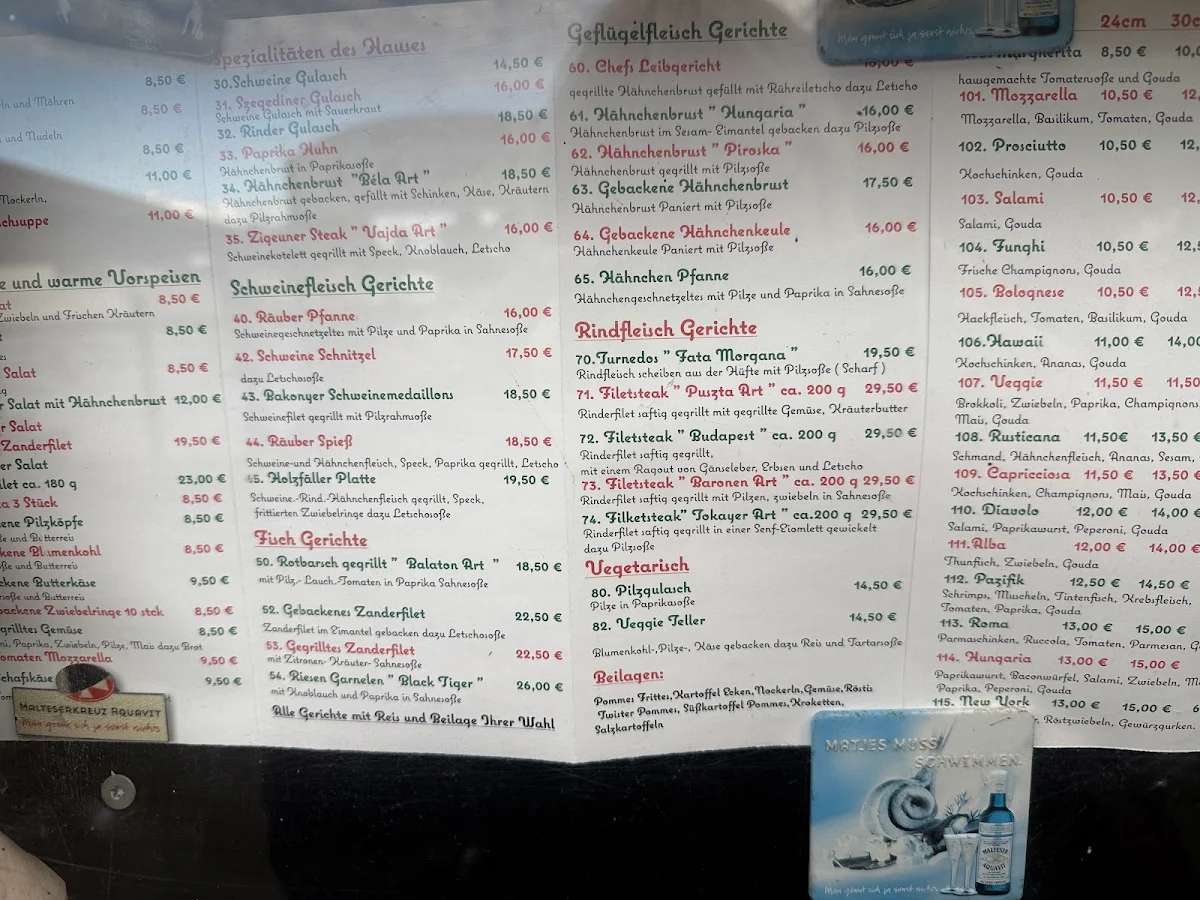 8,50 €
ln und Möhren
8,50 €
und Nudeln
8,50 €
11,00 €
Nockerln,
chsuppe 11,00 €
e und warme Vorspeisen
at 8,50 €
Zwiebeln und Frischen Kräutern
8,50 €
Salat 8,50 €
r Salat mit Hähnchenbrust 12,00 €
r Salat
Zanderfilet 19,50 €
er Salat
ilet ca. 180 g 23,00 €
a 3 Stück 8,50 €
ene Pilzköpfe 8,50 €
ße und Butterreis
kene Blumenkohl 8,50 €
oße und Butterreis
ckene Butterkäse 9,50 €
rsoße und Butterreis
backene Zwiebelringe 10 stck. 8,50 €
grilltes Gemüse 8,50 €
ni, Paprika, Zwiebeln, Pilze, Mais dazu Brot
omaten Mozzarella 9,50 €
chafskäse 9,50 €
MALTESERKREUZ AQUAVIT
Man gönnt sich ja sonst nichts.
Spezialitäten des Hauses
30.Schweine Gulasch 14,50 €
31. Szegediner Gulasch 16,00 €
Schweine Gulasch mit Sauerkraut
32. Rinder Gulasch 18,50 €
33. Paprika Huhn 16,00 €
Hähnchenbrust in Paprikasoße
34. Hähnchenbrust "Béla Art " 18,50 €
Hähnchenbrust gebacken, gefüllt mit Schinken, Käse, Kräutern
dazu Pilzrahmsoße
35. Zigeuner Steak " Vajda Art " 16,00 €
Schweinekotelett gegrillt mit Speck, Knoblauch, Letscho
Schweinefleisch Gerichte
40. Räuber Pfanne 16,00 €
Schweinegeschnetzeltes mit Pilze und Paprika in Sahnesoße
42. Schweine Schnitzel 17,50 €
dazu Letschosoße
43. Bakonyer Schweinemedaillons 18,50 €
Schweinefilet gegrillt mit Pilzrahmsoße
44. Räuber Spieß 18,50 €
Schweine-und Hähnchenfleisch, Speck, Paprika gegrillt, Letscho
45. Holzfäller Platte 19,50 €
Schweine.-Rind.-Hähnchenfleisch gegrillt, Speck,
frittierten Zwiebelringe dazu Letschosoße
Fisch Gerichte
50. Rotbarsch gegrillt " Balaton Art " 18,50 €
mit Pilz.- Lauch.-Tomaten in Paprika Sahnesoße
52. Gebackenes Zanderfilet 22,50 €
Zanderfilet im Eimantel gebacken dazu Letschosoße
53. Gegrilltes Zanderfilet 22,50 €
mit Zitronen- Kräuter- Sahnesoße
54. Riesen Garnelen " Black Tiger " 26,00 €
mit Knoblauch und Paprika in Sahnesoße
Alle Gerichte mit Reis und Beilage Ihrer Wahl
Geflügelfleisch Gerichte
60. Chefs Leibgericht 18,00 €
gegrillte Hähnchenbrust gefüllt mit Rühreiletscho dazu Letscho
61. Hähnchenbrust " Hungaria " 16,00 €
Hähnchenbrust im Sesam- Eimantel gebacken dazu Pilzsoße
62. Hähnchenbrust " Piroska " 16,00 €
Hähnchenbrust gegrillt mit Pilzsoße
63. Gebackene Hähnchenbrust 17,50 €
Hähnchenbrust Paniert mit Pilzsoße
64. Gebackene Hähnchenkeule 16,00 €
Hähnchenkeule Paniert mit Pilzsoße
65. Hähnchen Pfanne 16,00 €
Hähnchengeschnetzeltes mit Pilze und Paprika in Sahnesoße
Rindfleisch Gerichte
70.Turnedos " Fata Morgana " 19,50 €
Rindfleisch scheiben aus der Hüfte mit Pilzsoße ( Scharf )
71. Filetsteak " Puszta Art " ca. 200 g 29,50 €
Rinderfilet saftig gegrillt mit gegrillte Gemüse, Kräuterbutter
72. Filetsteak " Budapest " ca. 200 g 29,50 €
Rinderfilet saftig gegrillt,
mit einem Ragout von Gänseleber, Erbsen und Letscho
73. Filetsteak " Baronen Art " ca. 200 g 29,50 €
Rinderfilet saftig gegrillt mit Pilzen, zwiebeln in Sahnesoße
74. Filketsteak" Tokayer Art " ca.200 g 29,50 €
Rinderfilet saftig gegrillt in einer Senf-Eiomlett gewickelt
dazu Pilzsoße
Vegetarisch
80. Pilzgulasch 14,50 €
Pilze in Paprikasoße
82. Veggie Teller 14,50 €
Blumenkohl-,Pilze-, Käse gebacken dazu Reis und Tartarsoße
Beilagen:
Pommes Frittes,Kartoffel Ecken,Nockerln,Gemüse,Rösti
Twister Pommes, Süßkartoffel Pommes,Kroketten,
Salzkartoffeln
Man gönnt sich ja sonst nichts.
24cm 30c
Margherita 8,50 € 10,0
hausgemachte Tomatensoße und Gouda
101. Mozzarella 10,50 € 12,
Mozzarella, Basilikum, Tomaten, Gouda
102. Prosciutto 10,50 € 12,
Kochschinken, Gouda
103. Salami 10,50 € 12,
Salami, Gouda
104. Funghi 10,50 € 12,5
Frische Champignons, Gouda
105. Bolognese 10,50 € 12,5
Hackfleisch, Tomaten, Basilikum, Gouda
106.Hawaii 11,00 € 14,00
Kochschinken, Ananas, Gouda
107. Veggie 11,50 € 11,50
Brokkoli, Zwiebeln, Paprika, Champignons,
Mais, Gouda
108. Rusticana 11,50€ 13,50 €
Schmand, Hähnchenfleisch, Ananas, Sesam,
109. Capricciosa 11,50 € 13,50 €
Kochschinken, Champignons, Mais, Gouda
110. Diavolo 12,00 € 14,00 €
Salami, Paprikawurst, Peperoni, Gouda
111.Alba 12,00 € 14,00 €
Thunfisch, Zwiebeln, Gouda
112. Pazifik 12,50 € 14,50 €
Schrimps, Muscheln, Tintenfisch, Krebsfleisch,
Tomaten, Paprika, Gouda
113. Roma 13,00 € 15,00 €
Parmaschinken, Ruccola, Tomaten, Parmesan, G
114. Hungaria 13,00 € 15,00 €
Paprikawurst, Baconwürfel, Salami, Zwiebeln, M
Paprika, Peperoni, Gouda
115. New York 13,00 € 15,00 € 6
r, Röstzwiebeln, Gewürzgurken,
MATJES MUSS
SCHWIMMEN.
MALTESER
AQUAVIT
Man gönnt sich ja sonst nichts.